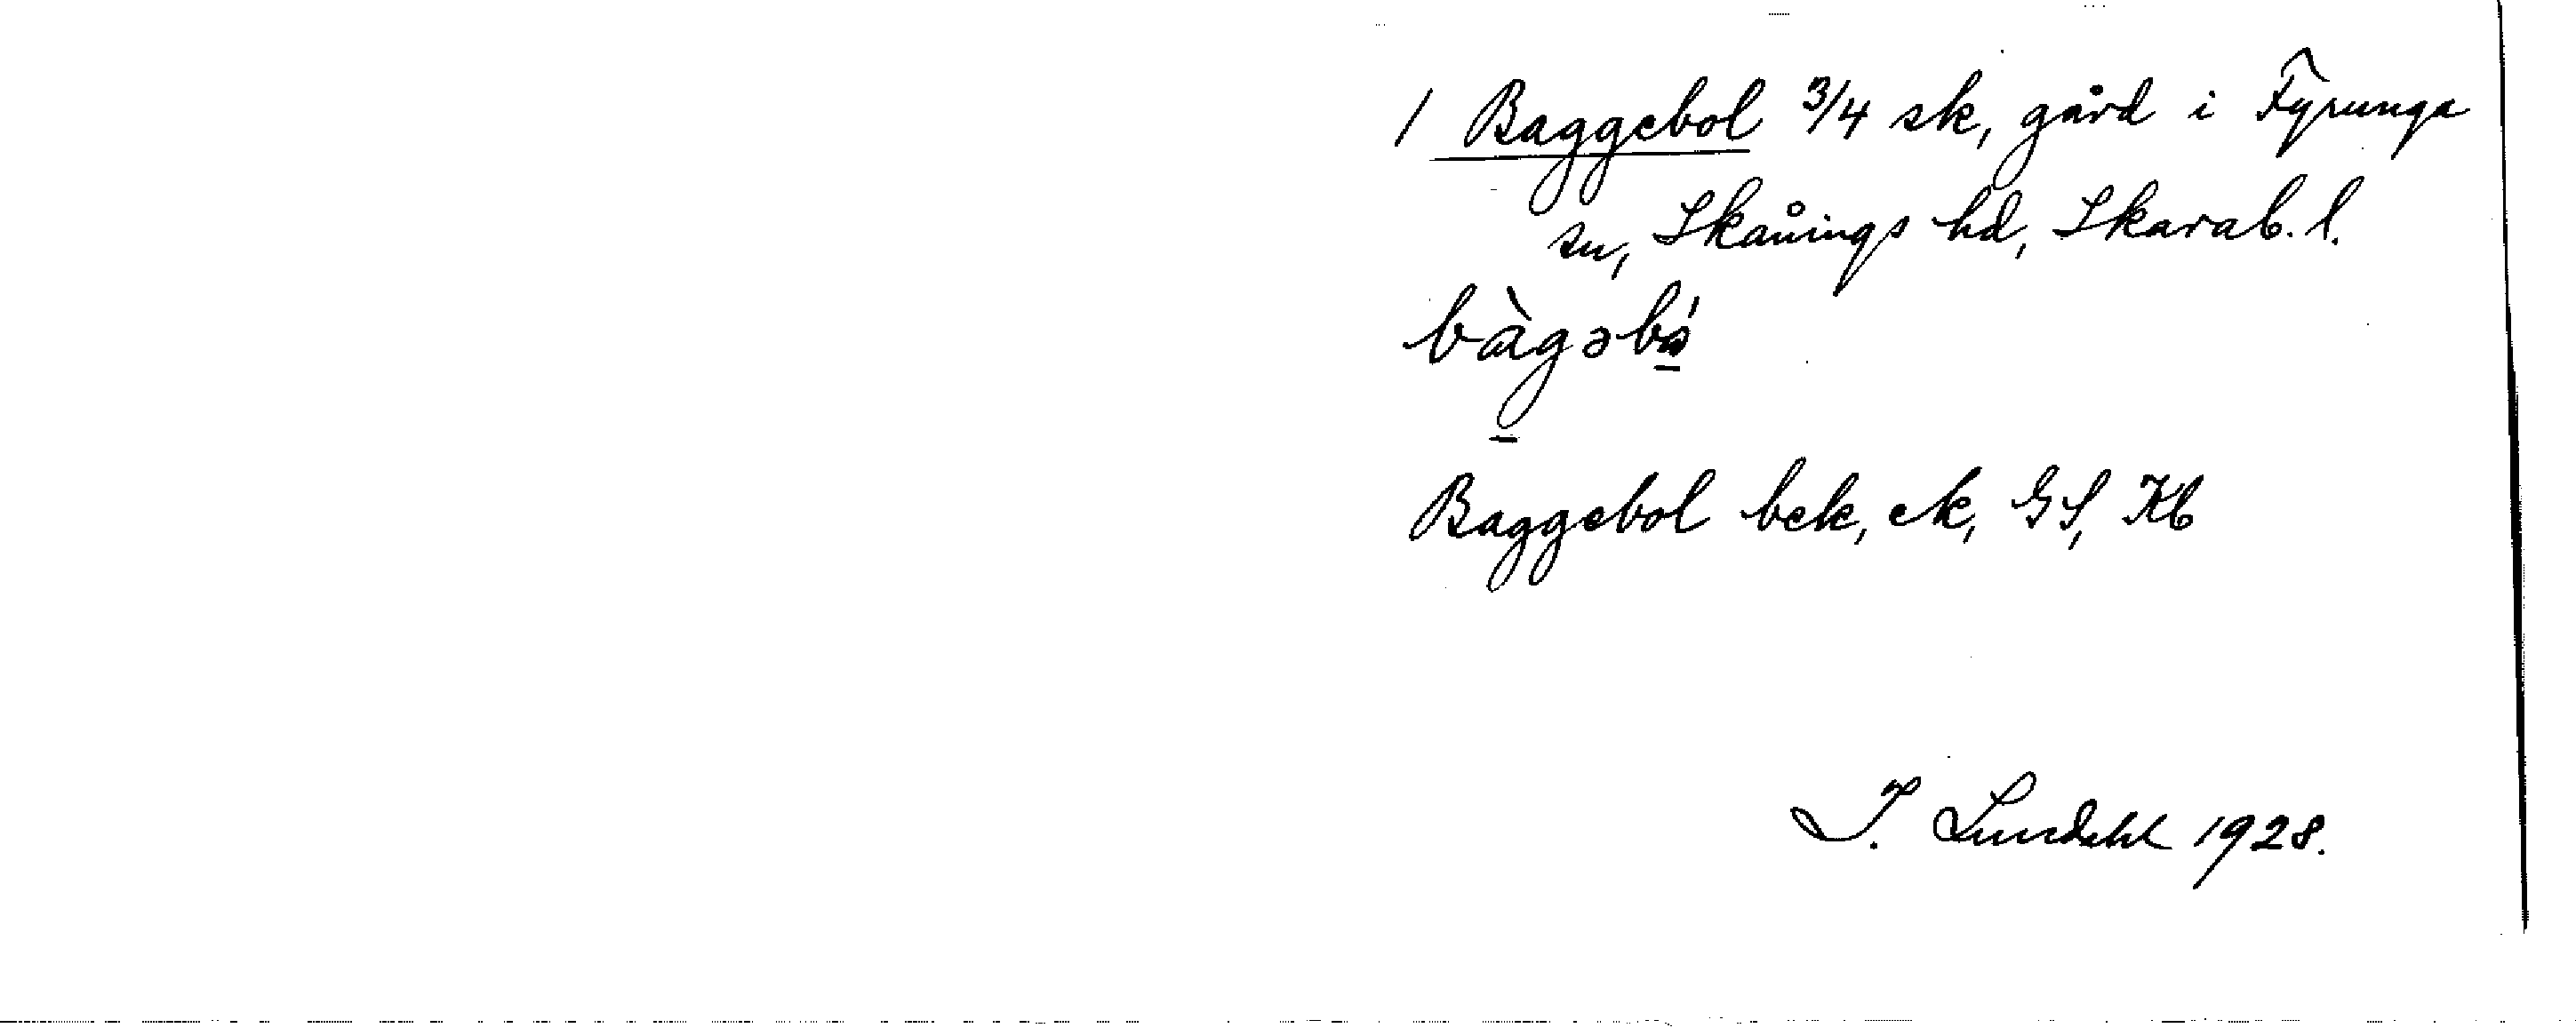 1 Baggebol 3/4 sk, gård i Fyrunga
sn, Skånings hd, Skarab. l.
bàgəbó
Baggebol bek, ek, GS, Kb
I. Lundahl 1928.